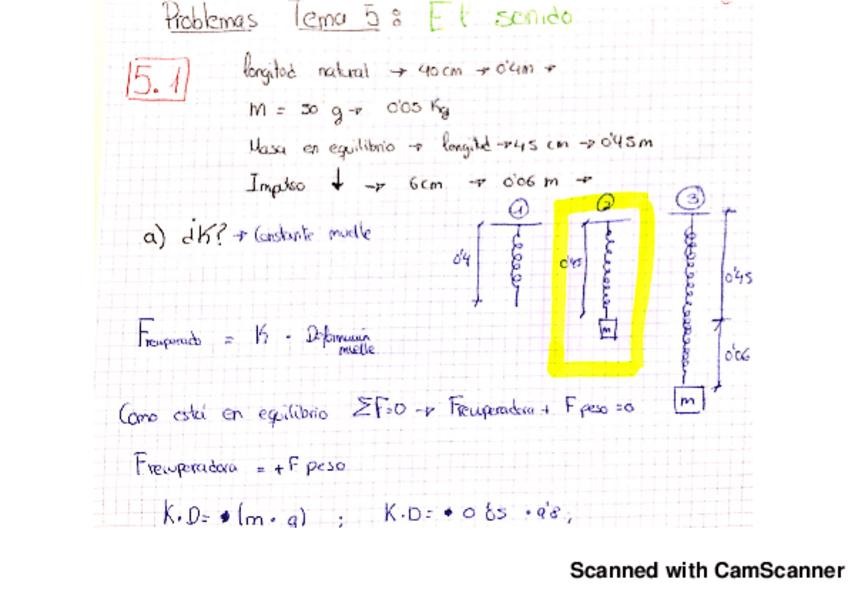 Problemas Tema 5: El sonido
5.1
longitud natural → 40 cm → 0'4m →
m = 50 g → 0'05 Kg
Masa en equilibrio → longitud → 45 cm → 0'45 m
Impulso ↓ → 6cm → 0'06 m →
1 2 3
a) ¿K? → Constante muelle
0'4 0'45 0'45
m
0'06
Frecuperado = K · Deformación muelle
m
Como está en equilibrio ΣF=0 → Frecuperadora + F peso =0
Frecuperadora = + F peso
K·D= (m · a) ; K·D= 0 05 · 9'8 ;
Scanned with CamScanner